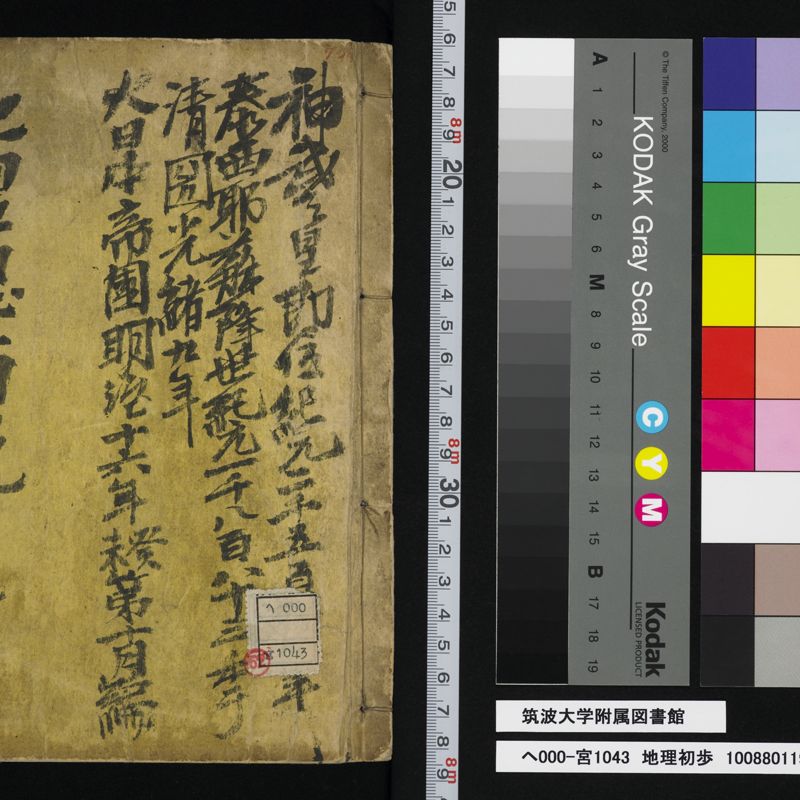 神武天皇即位紀元二千五百
泰西耶蘇降世紀元一千八百八十三年
清国光緒九年
大日本帝国明治十六年癸未第十月編
ヘ 000
宮1043
© The Tiffen Company, 2000
KODAK Gray Scale
A 1 2 3 4 5 6 M 8 9 10 11 12 13 14 15 B 17 18 19
C Y M
Kodak
LICENSED PRODUCT
5 6 7 8 9 20 1 2 3 4 5 6 7 8 9 30 1 2 3 4 5 6 7 8 9
8m
8m
8m
筑波大学附属図書館
ヘ000-宮1043 地理初歩 10088011